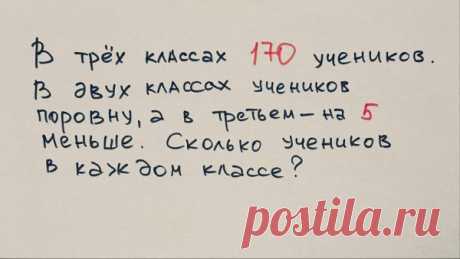 В трёх классах 170 учеников.
В двух классах учеников
поровну, а в третьем — на 5
меньше. Сколько учеников
в каждом классе?
postila.ru